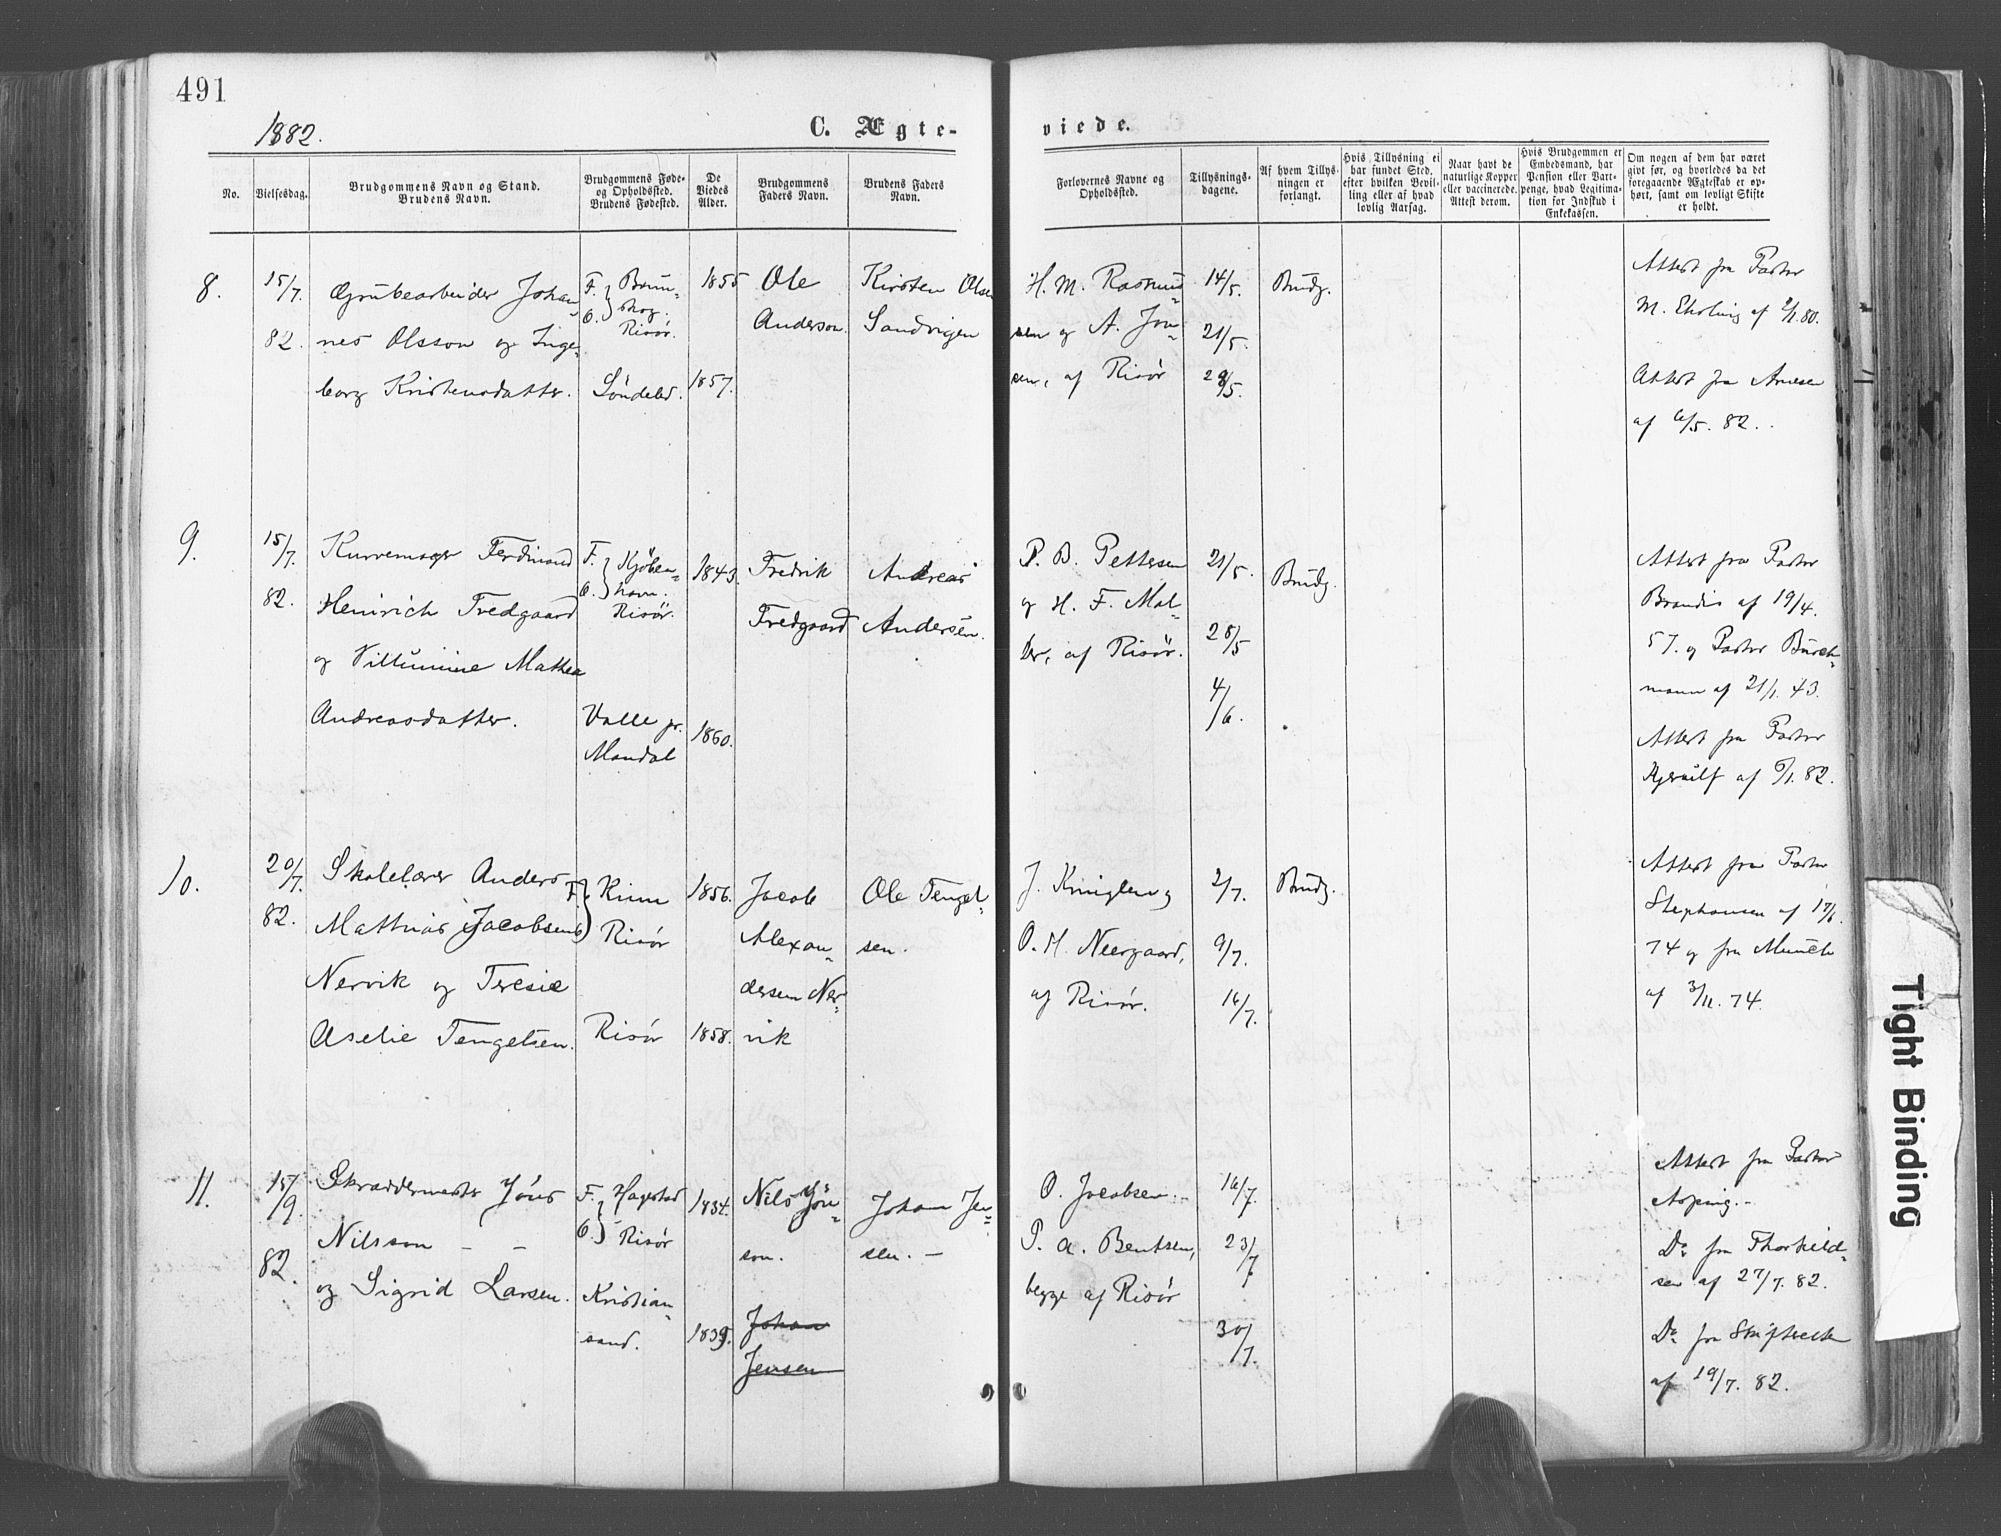 491
1882.
C. Ægte-
viede.
No.
Vielsesdag.
Brudgommens Navn og Stand.
Brudens Navn.
Brudgommens Føde-
og Opholdssted.
Brudens Fødested.
De
Viedes
Alder.
Brudgommens
Faders Navn.
Brudens Faders
Navn.
Forlovernes Navne og
Opholdssted.
Tillysnings-
dagene.
Af hvem Tillys-
ningen er
forlangt.
Hvis Tillysning ei
har fundet Sted,
efter hvilken Bevil-
ling eller af hvad
lovlig Aarsag.
Naar havt de
naturlige Kopper
eller vaccinerede.
Attest derom.
Hvis Brudgommen er
Embedsmand, har
Pension eller Vart-
penge, hvad Legitima-
tion for Indskud i
Enkekassen.
Om nogen af dem har været
givt før, og hvorledes da det
foregaaende Ægteskab er op-
hørt, samt om lovligt Skifte
er holdt.
8.
15/7.
82.
Grubearbeider Johan
nes Olsson og Inge-
borg Kristensdatter.
F. Brun-
skog.
O. Risör.
Söndeled.
1855
1857.
Ole
Anderson.
Kirsten Olsen
Sandvigen
H. M. Rasmus-
sen og A. Jen-
sen, af Risør
14/5.
21/5.
29/5.
Brudg.
Attest fra Pastor
M. Ekoling af 2/1.80.
Attest fra
af 6/5. 82..
9.
15/7.
82.
Kurvemager Ferdinand
Heinrich Fredgaard
og Villumine Mathea
Andreasdatter.
F. Kjöben-
havn.
O. Risör.
Valle pr.
Mandal
1843.
1860.
Fredrik
Fredgaard
Andreas
Andersen.
P. B. Pettersen
og H. F. Mal-
ler, af Risör.
21/5.
28/5
4/6.
Brudg.
Attest fra Pastor
Brandis af 19/4.
57. og Pastor Burch-
mann af 21/1. 43.
Attest fra Pastor
Kjerulf af 6/1. 82.
10.
20/7.
82.
Skolelærer Anders
Mathias Jacobsen
Nervik og Teresie
Aselie Tengelsen.
F. Kinn
O. Risör
Risör
1856.
1858.
Jacob
Alexan-
dersen Ner-
vik
Ole Tengel-
sen.
J. Kniglen og
O. H. Neergaard,
af Risør.
2/7.
9/7.
16/7.
Brudg.
Attest fra Pastor
Stephansen af 17/6.
74 og fra Munch
af 3/11. 74.
11.
15/9.
82.
Skræddermester Jöns
Nilsson – –
og Sigrid Larsen.
F. Hagestad
O. Risör
Kristian-
sand.
1834.
1839.
Nils Jön-
son.
Johan
Jensen
Johan Jen-
sen. –
O. Jacobsen.
P. A. Bentsen,
begge af Risör
16/7.
23/7.
30/7.
Attest fra Pastor
Asping. –
Do. fra Thorkild-
sen af 27/7. 82.
Do. fra Skifteretten
af 19/7. 82.
Tight Binding